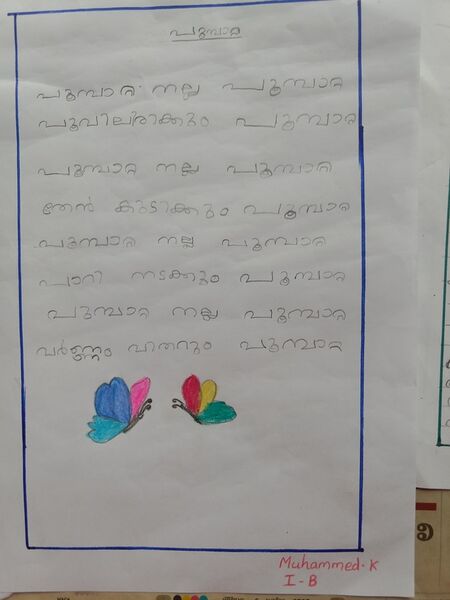 പൂമ്പാറ്റ
പൂമ്പാറ്റ നല്ല പൂമ്പാറ്റ
പൂവിലിരിക്കും പൂമ്പാറ്റ
പൂമ്പാറ്റ നല്ല പൂമ്പാറ്റ
തേൻ കുടിക്കും പൂമ്പാറ്റ
പൂമ്പാറ്റ നല്ല പൂമ്പാറ്റ
പാറി നടക്കും പൂമ്പാറ്റ
പൂമ്പാറ്റ നല്ല പൂമ്പാറ്റ
വർണ്ണം വിതറും പൂമ്പാറ്റ
Muhammed.K
I-B